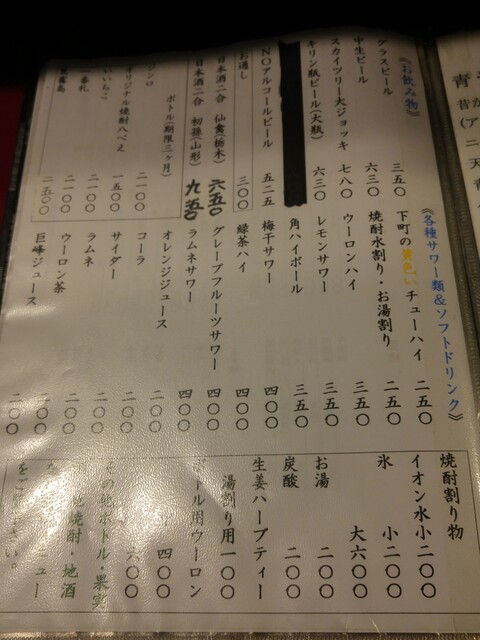 《お飲み物》
グラスビール 三五〇
中生ビール 六三〇
スカイツリー大ジョッキ 七八〇
キリン瓶ビール(大瓶) 六三〇
NOアルコールビール 五二五
お通し 三〇〇
日本酒二合 仙禽(栃木) 六五〇
日本酒二合 初孫(山形) 九五〇
ボトル(期限三ヶ月)
ジンロ 二一〇〇
オリジナル焼酎八べえ 一五〇〇
いいちこ 二一〇〇
二一〇〇
二五〇〇
《各種サワー類&ソフトドリンク》
下町の黄色いチューハイ 二五〇
焼酎水割り・お湯割り 二五〇
ウーロンハイ 三五〇
レモンサワー 三五〇
角ハイボール 三五〇
梅干サワー 四〇〇
緑茶ハイ 四〇〇
グレープフルーツサワー 四〇〇
ラムネサワー 四〇〇
オレンジジュース 二〇〇
コーラ 二〇〇
サイダー 二〇〇
ラムネ 二〇〇
ウーロン茶 二〇〇
巨峰ジュース 二〇〇
焼酎割り物
イオン水小二〇〇
氷 小二〇〇
大六〇〇
お湯 二〇〇
炭酸 二〇〇
生姜ハーブティー
湯割り用一〇〇
ボトル用ウーロン
四〇〇
六〇〇
その他ボトル・果実
焼酎・地酒
ニュー
をご
い。
青
昔か
(ア
ニ
天
青